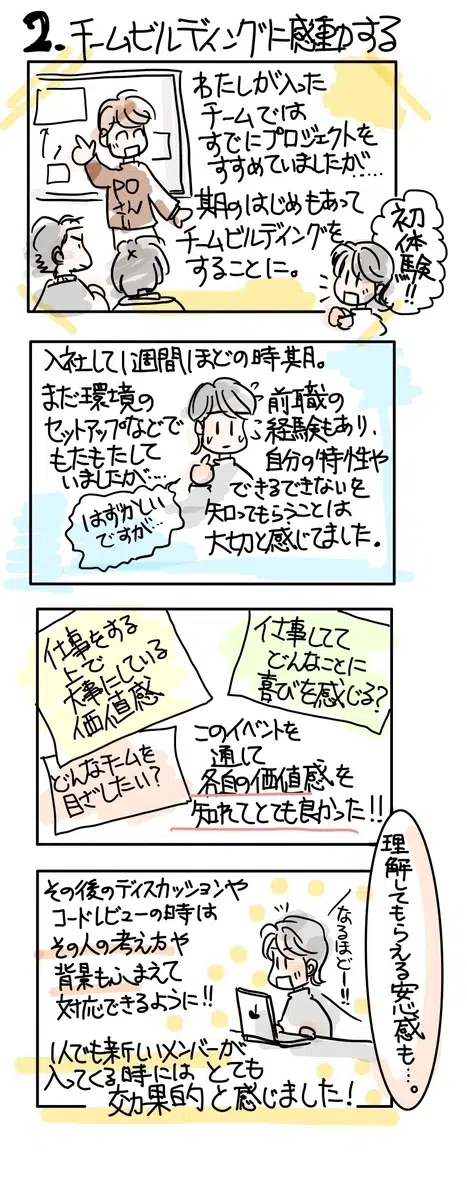 2.チームビルディングに感動する
わたしが入った
チームでは
すでにプロジェクトを
すすめていましたが……
期のはじめもあって
チームビルディングを
することに。
POさん
初体験!!
入社して1週間ほどの時期。
まだ環境の
セットアップなどで
もたもたして
いましたが…
はずかしい
ですが…
前職の
経験もあり、
自分の特性や
できるできないを
知ってもらうことは
大切と感じてました。
仕事をする
上で
大事にしている
価値感
仕事してて
どんなことに
喜びを感じる?
どんなチームを
目ざしたい?
このイベントを
通して
各自の価値感を
知れてとても良かった!!
理解してもらえる安心感も…。
その後のディスカッションや
コードレビューの時は
その人の考え方や
背景もふまえて
対応できるように!!
なるほどー!!
1人でも新しいメンバーが
入ってくる時には とても
効果的と感じました!